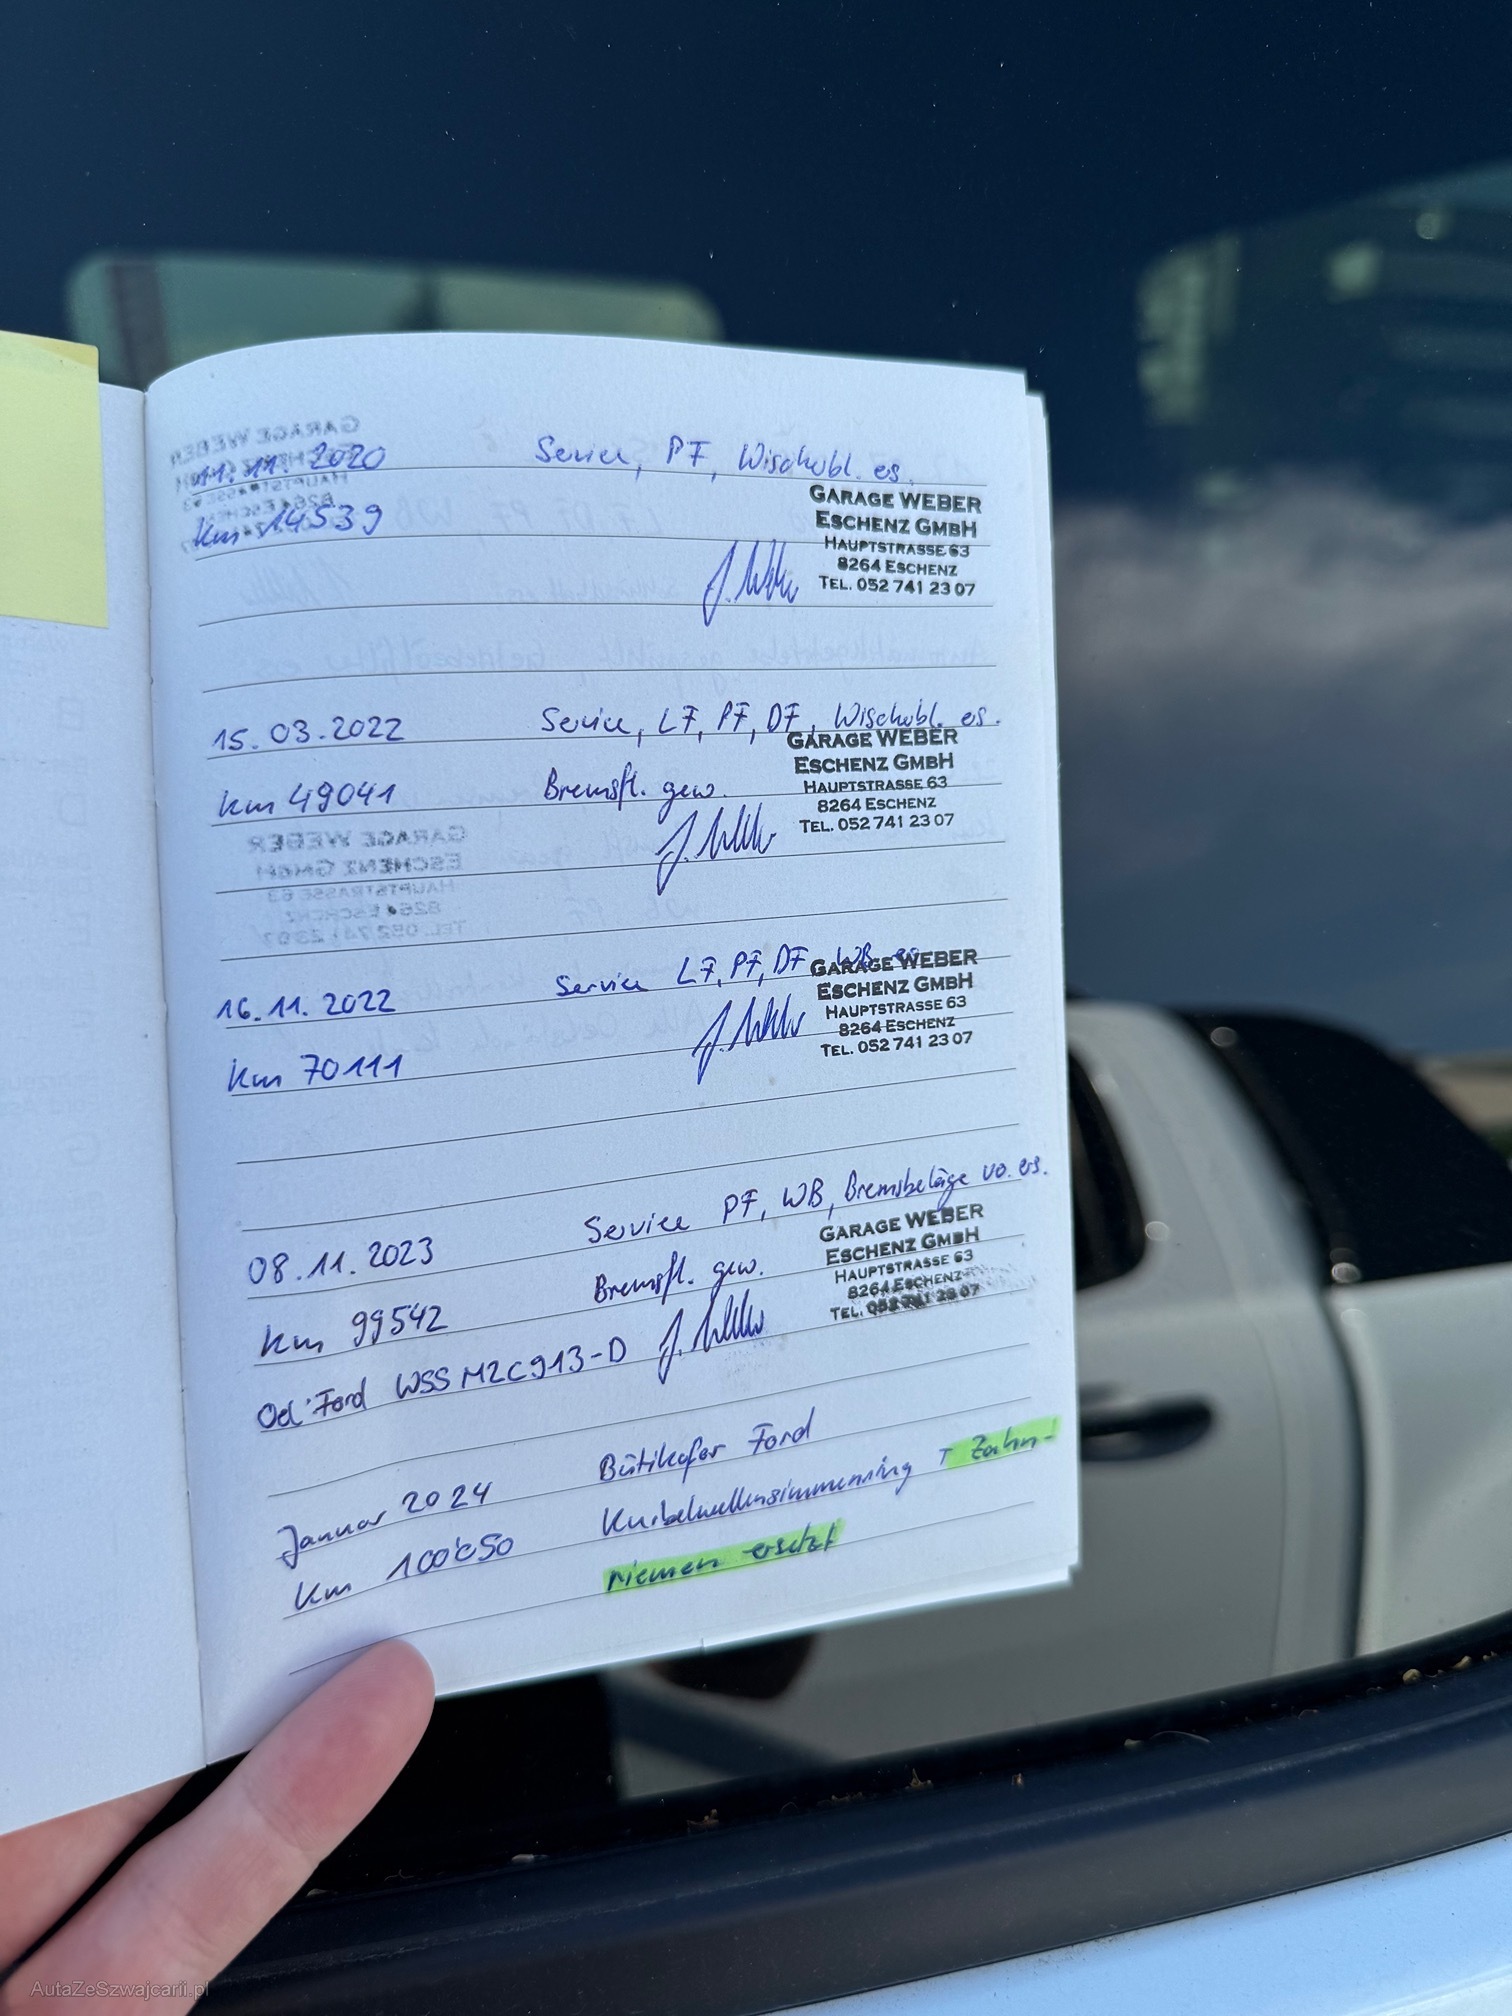 11.11.2020 Service, PF, Wischbl. es.
km 14539
GARAGE WEBER
ESCHENZ GMBH
HAUPTSTRASSE 63
8264 ESCHENZ
TEL. 052 741 23 07
15.03.2022 Service, LF, PF, DF, Wischbl. es.
km 49041 Bremsfl. gew.
GARAGE WEBER
ESCHENZ GMBH
HAUPTSTRASSE 63
8264 ESCHENZ
TEL. 052 741 23 07
16.11.2022 Service LF, PF, DF WB es
km 70111
GARAGE WEBER
ESCHENZ GMBH
HAUPTSTRASSE 63
8264 ESCHENZ
TEL. 052 741 23 07
08.11.2023 Service PF, WB, Bremsbeläge vo. es.
km 99542 Bremsfl. gew.
GARAGE WEBER
ESCHENZ GMBH
HAUPTSTRASSE 63
8264 ESCHENZ
TEL. 052 741 23 07
Oel: Ford WSS M2C913-D
Januar 2024 Bütikofer Ford
km 100'050 Kurbelwellensimmerring + Zahn-
riemen ersetzt
AutaZeSzwajcarii.pl